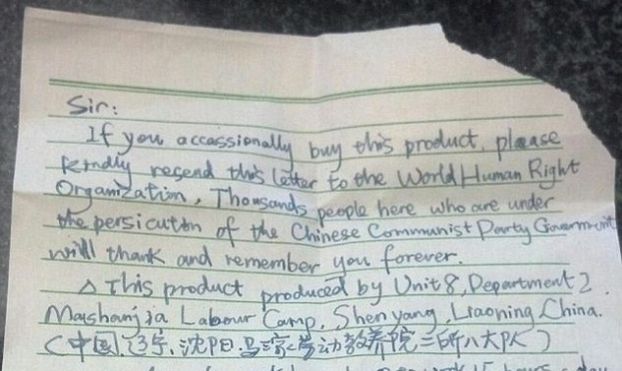 Sir:
If you accassionally buy this product, please
kindly resend this letter to the World Human Right
Organization, Thousands people here who are under
the persicution of the Chinese Communist Party Government
will thank and remember you forever.
△ This product produced by Unit 8, Department 2.
Mashanjia Labour Camp, Shenyang, Liaoning, China.
(中国.辽宁、沈阳.马三家劳动教养院二所八大队)